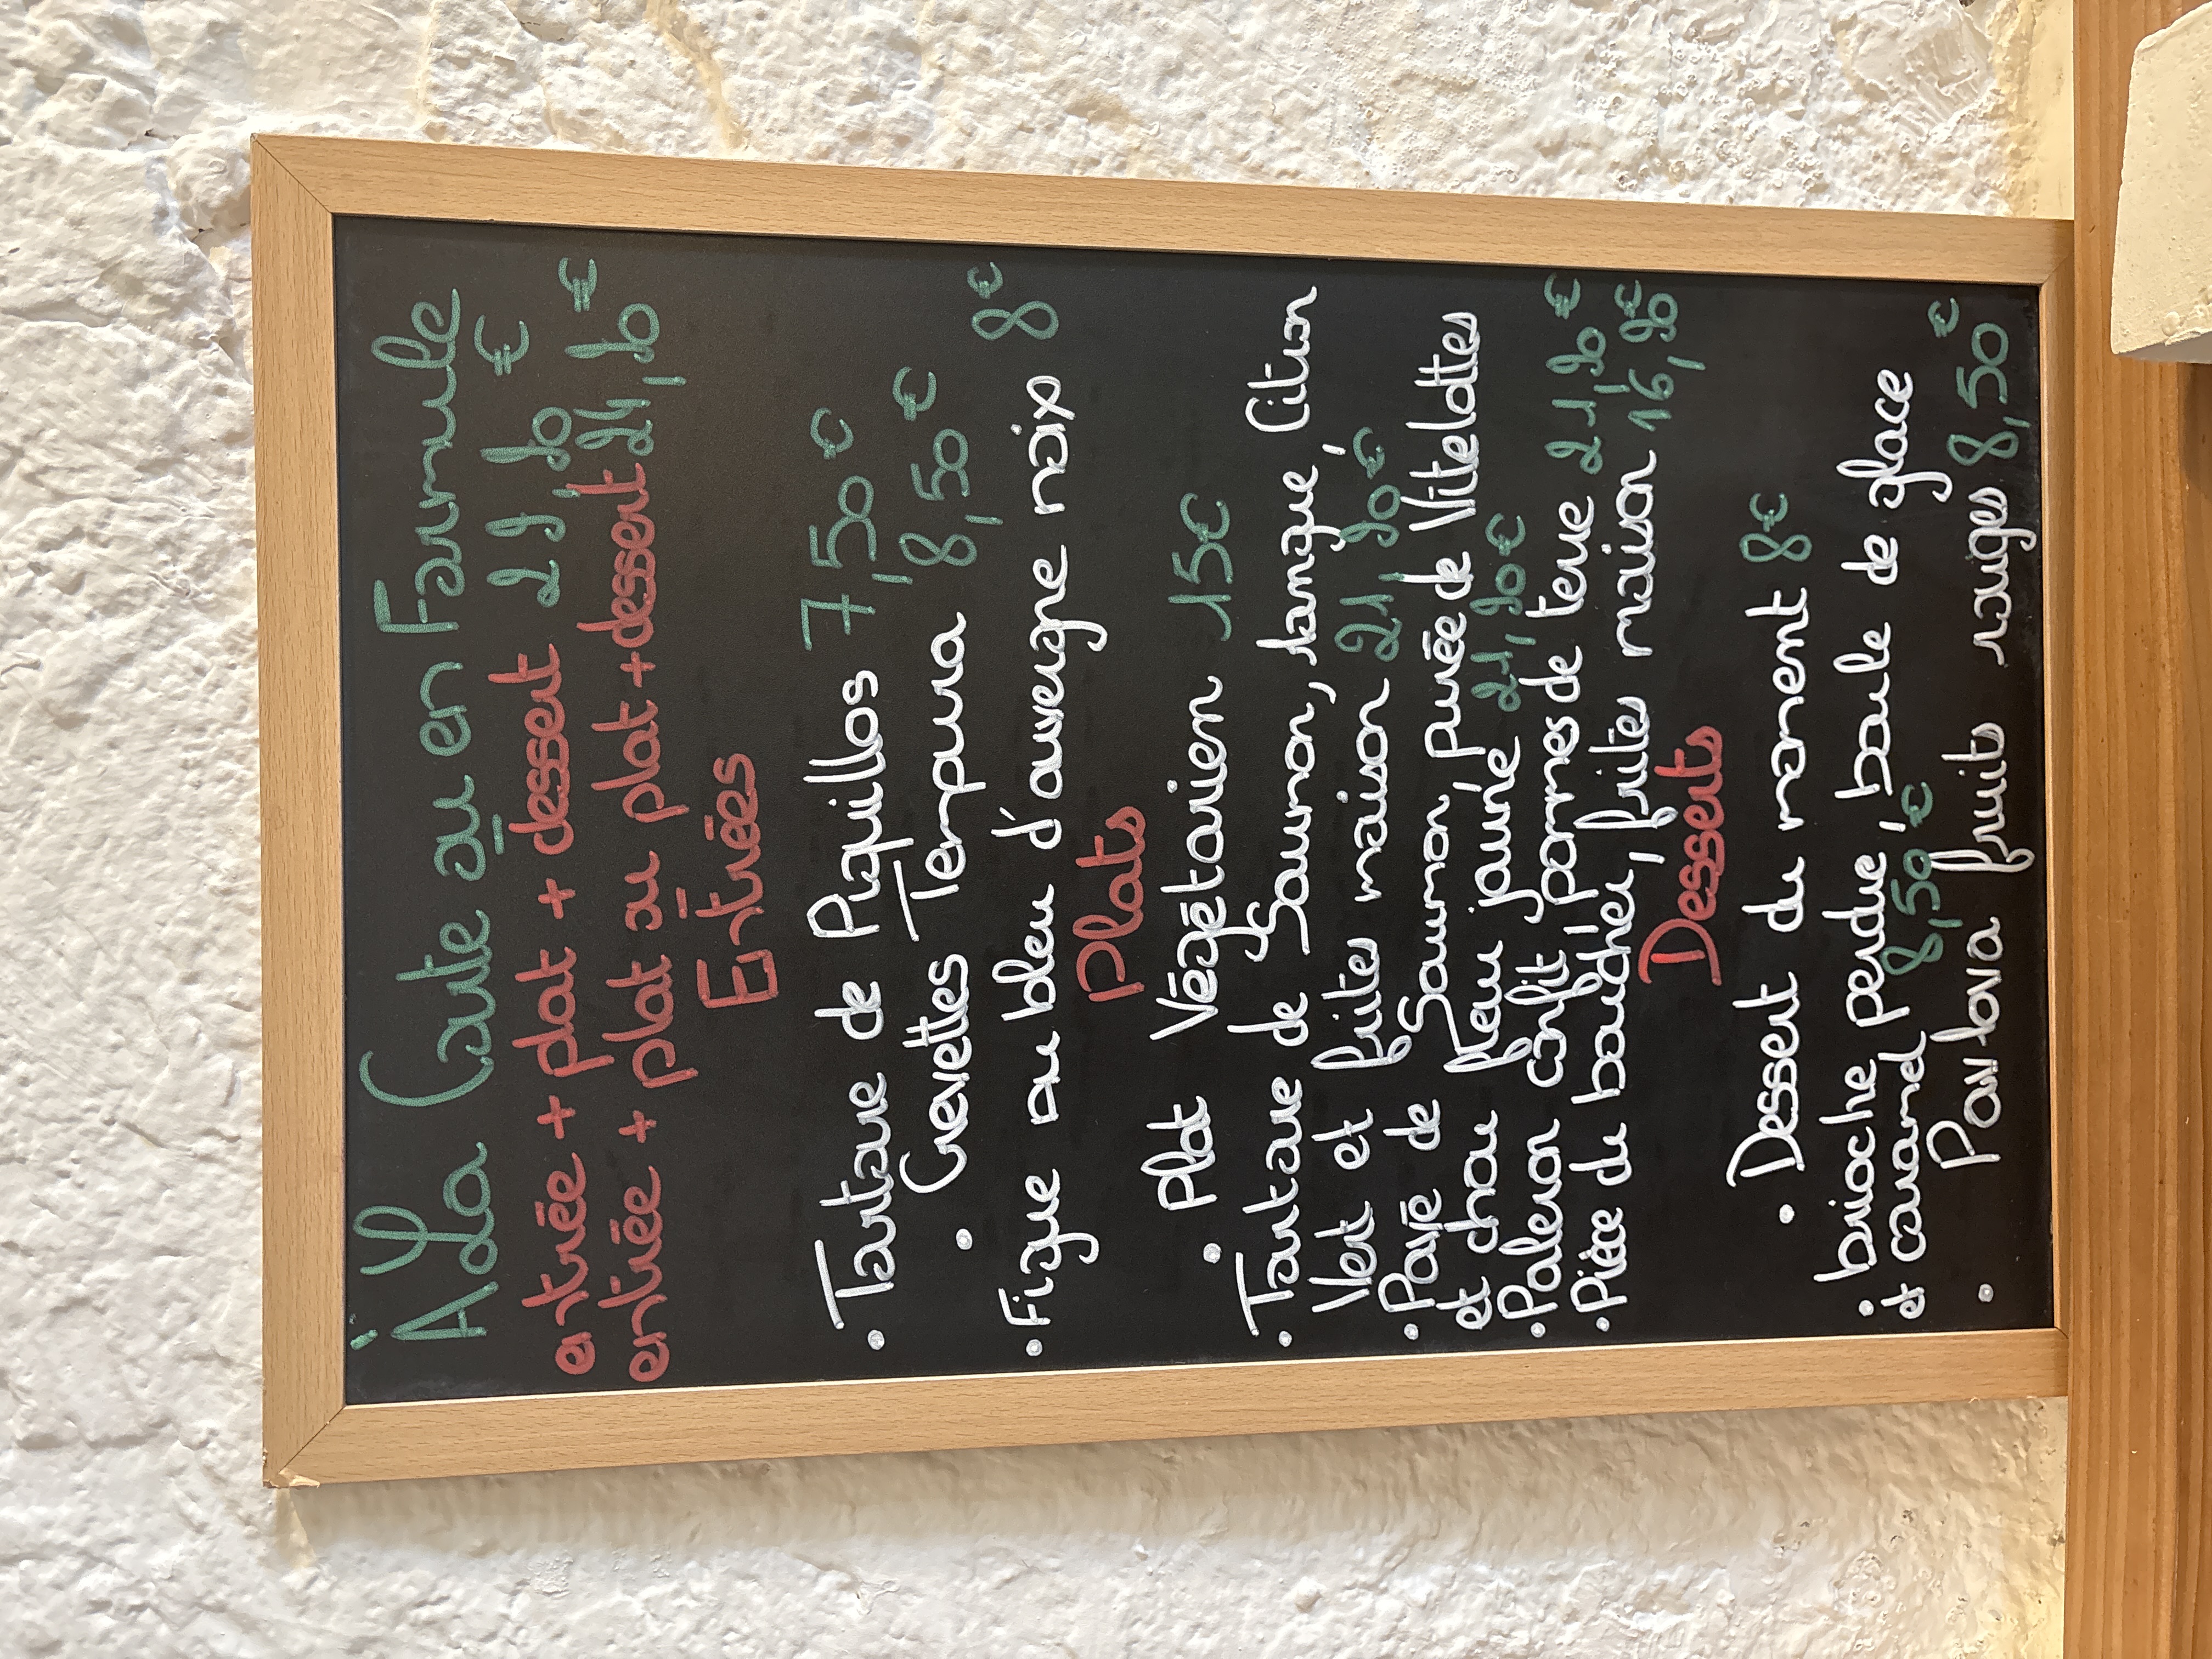 À La Carte ou en Formule
entrée + plat + dessert 29,90 €
entrée + plat ou plat + dessert 24,90 €
Entrées
• Tartare de Piquillos 7,50 €
• Crevettes Tempura 8,50 €
• Figue au bleu d'auvergne noix 8€
Plats
• Plat Végétarien 15€
• Tartare de Saumon, mangue, Citron
Vert et frites maison 21,90€
• Pavé de Saumon, purée de Vitelottes
et chou fleur jaune 21,90€
• Paleron confit, pommes de terre 21,90€
• Pièce du boucher, frites maison 16,90€
Desserts
• Dessert du moment 8€
• brioche perdue, boule de glace
et caramel 8,50€
• Pavlova fruits rouges 8,50€